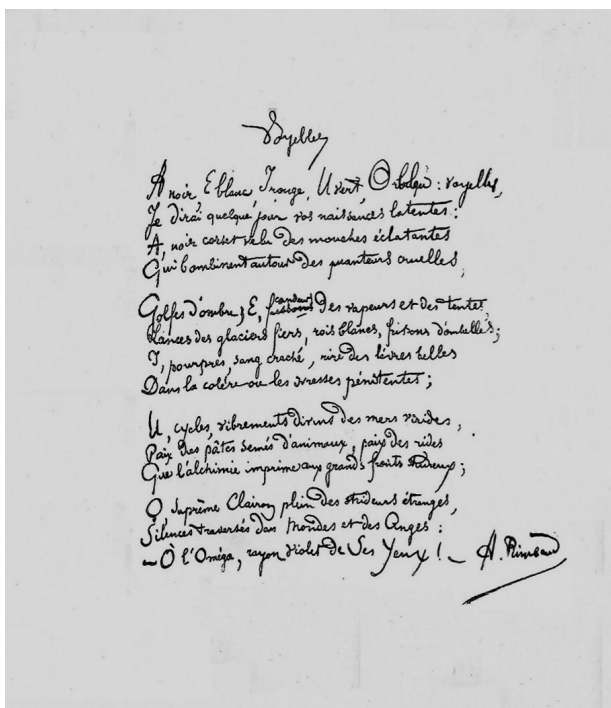 Voyelles
A noir, E blanc, I rouge, U vert, O bleu : voyelles,
Je dirai quelque jour vos naissances latentes :
A, noir corset velu des mouches éclatantes
Qui bombinent autour des puanteurs cruelles,
Golfes d'ombre ; E, frissons candeurs des vapeurs et des tentes,
Lances des glaciers fiers, rois blancs, frissons d'ombelles ;
I, pourpres, sang craché, rire des lèvres belles
Dans la colère ou les ivresses pénitentes ;
U, cycles, vibrements divins des mers virides,
Paix des pâtis semés d'animaux, paix des rides
Que l'alchimie imprime aux grands fronts studieux ;
O, suprême Clairon plein des strideurs étranges,
Silences traversés des Mondes et des Anges :
– O l'Oméga, rayon violet de Ses Yeux ! – A. Rimbaud